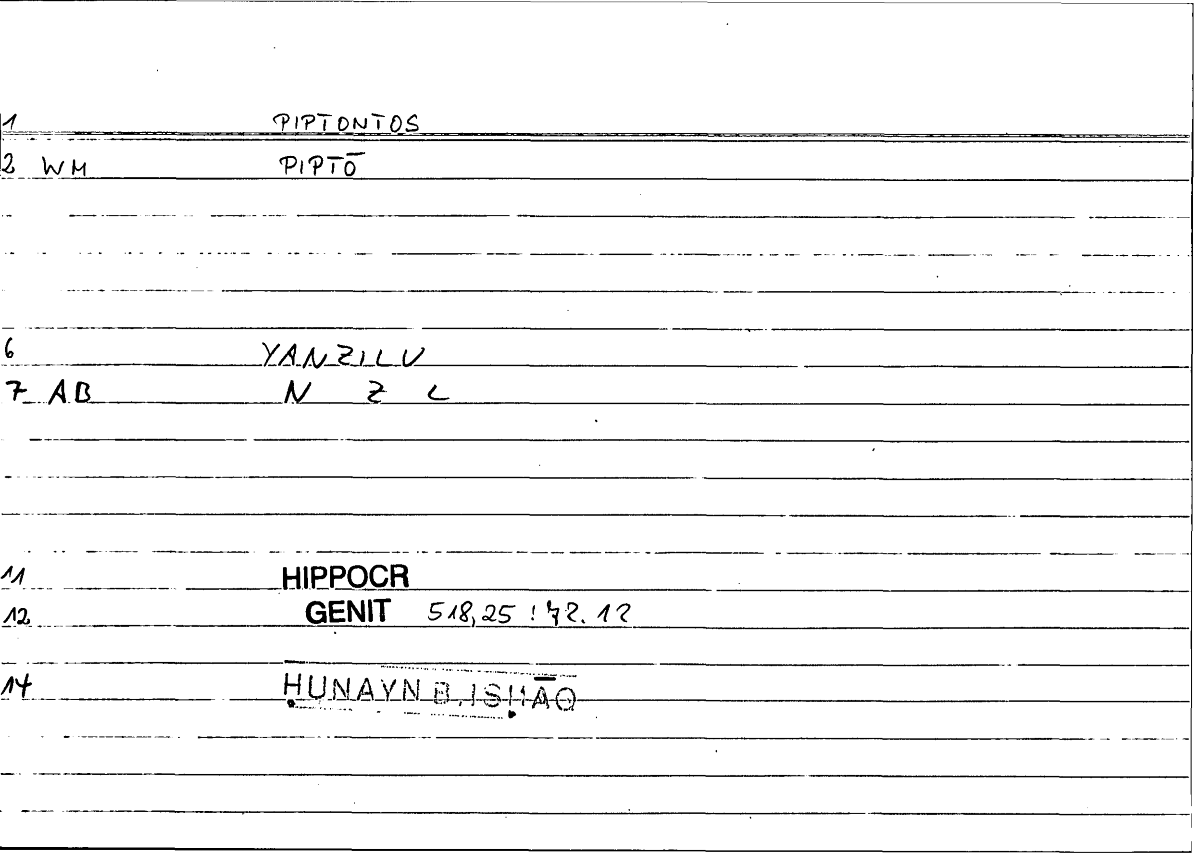 1 PIPTONTOS
2 WM PIPTŌ
6 YANZILU
7 AB N Z L
11 HIPPOCR
12 GENIT 518,25 : 72.12
14 ḤUNAYN B. ISḤĀQ